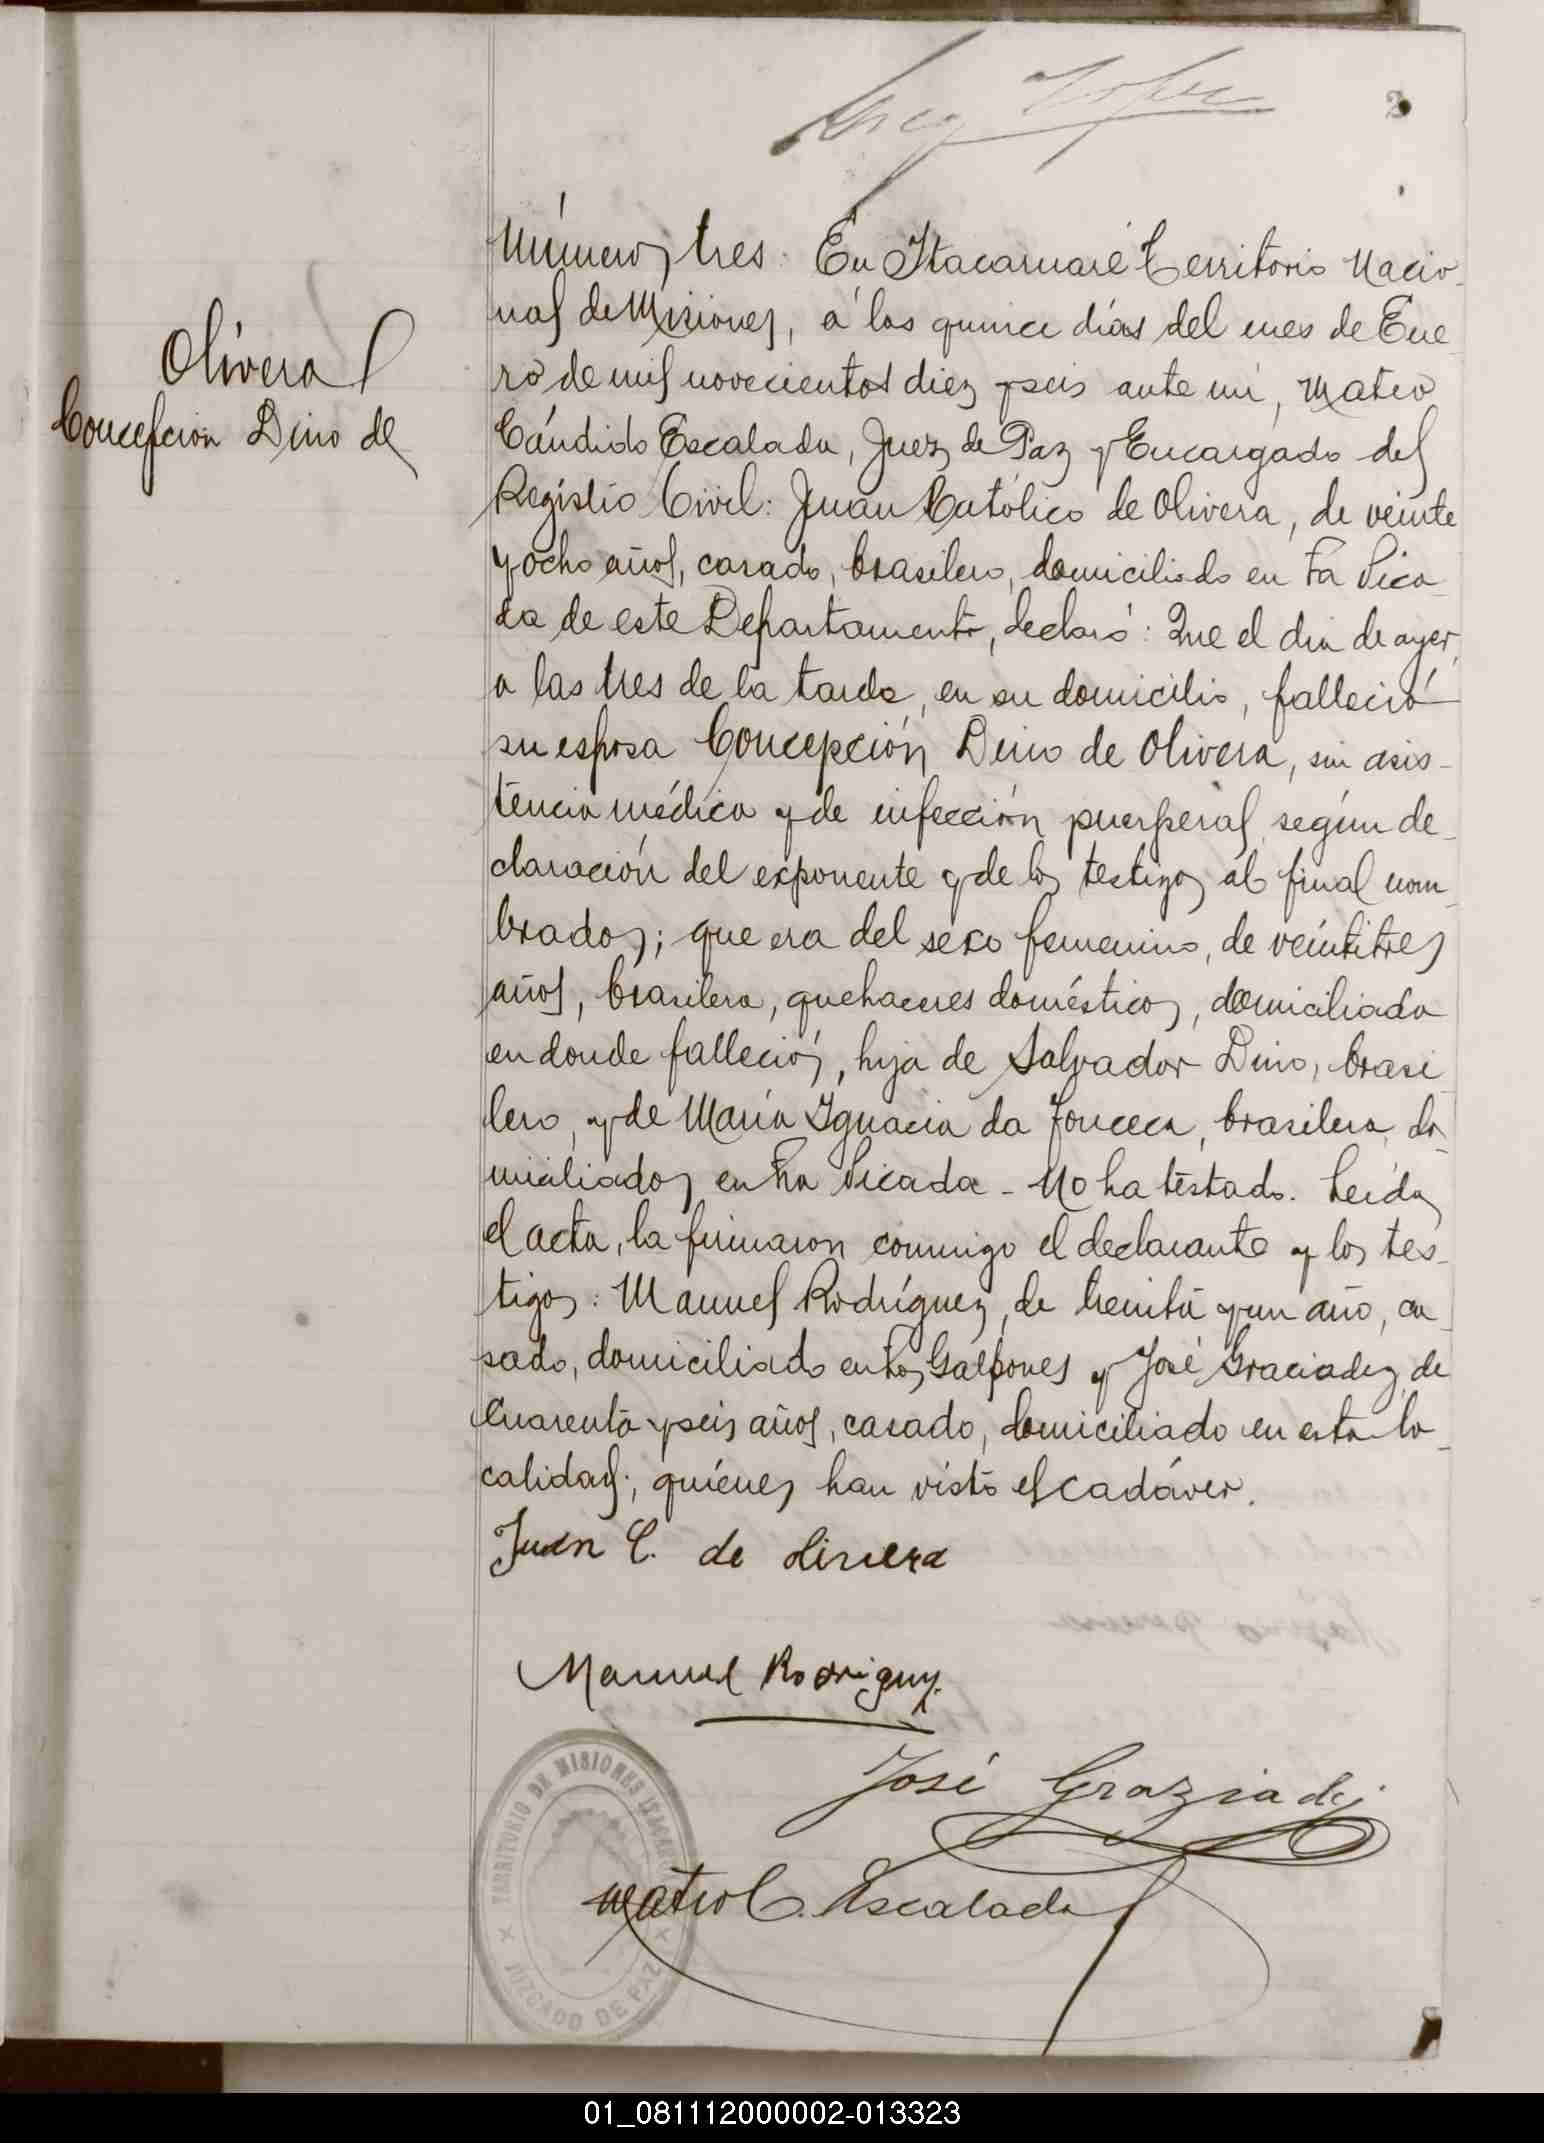 2
Número tres: En Itacaruaré Territorio Nacio-
nal de Misiones, á los quince días del mes de Ene-
ro de mil novecientos diez y seis ante mí, Mateo
Olivera
Cándido Escalada, Juez de Paz y Encargado del
Concepción Dino de
Registro Civil: Juan Católico de Olivera, de veinte
y ocho años, casado, brasilero, domiciliado en La Pica-
da de este Departamento, declaró: Que el día de ayer,
a las tres de la tarde, en su domicilio, falleció
su esposa Concepción Dino de Olivera, sin asis-
tencia médica y de infección puerperal según de-
claración del exponente y de los testigos al final nom-
brados; que era del sexo femenino, de veintitres
años, brasilera, quehaceres domésticos, domiciliada
en donde falleció, hija de Salvador Dino, brasi-
lero, y de María Ignacia da Fonceca, brasilera, do-
miciliados en La Picada - No ha testado. Leída
el acta, la firmaron conmigo el declarante y los tes-
tigos: Manuel Rodríguez, de treinta y un año, ca-
sado, domiciliado en Los Galpones y José Graciadey, de
cuarenta y seis años, casado, domiciliado en esta lo-
calidad; quiénes han visto el cadáver.
Juan C. de olivera
Manuel Rodriguez
José Graziadej
TERRITORIO DE MISIONES
Mateo C. Escalada
JUZGADO DE PAZ
01_081112000002-013323